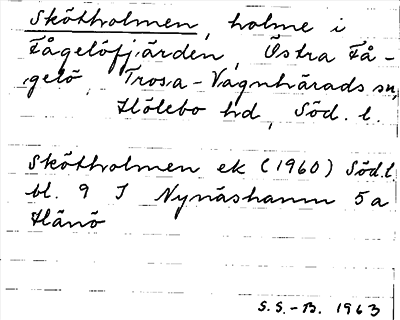 Skötholmen, holme i
Fågelöfjärden, Östra Få-
gelö, Trosa-Vagnhärads sn,
Hölebo hd, Söd. l.
Skötholmen ek (1960) Söd.l.
bl. 9 I Nynäshamn 5a
Hånö
S.S.-B. 1963